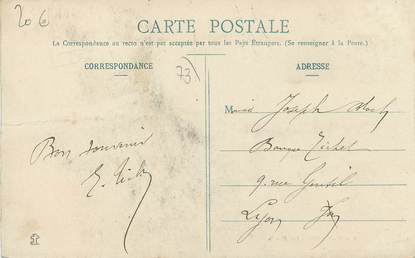 20 €
CARTE POSTALE
La Correspondance au recto n'est pas acceptée par tous les Pays Étrangers. (Se renseigner à la Poste.)
CORRESPONDANCE
73)
ADRESSE
M Joseph
Bon souvenir
Banque
E.
9. rue Gentil
Lyon